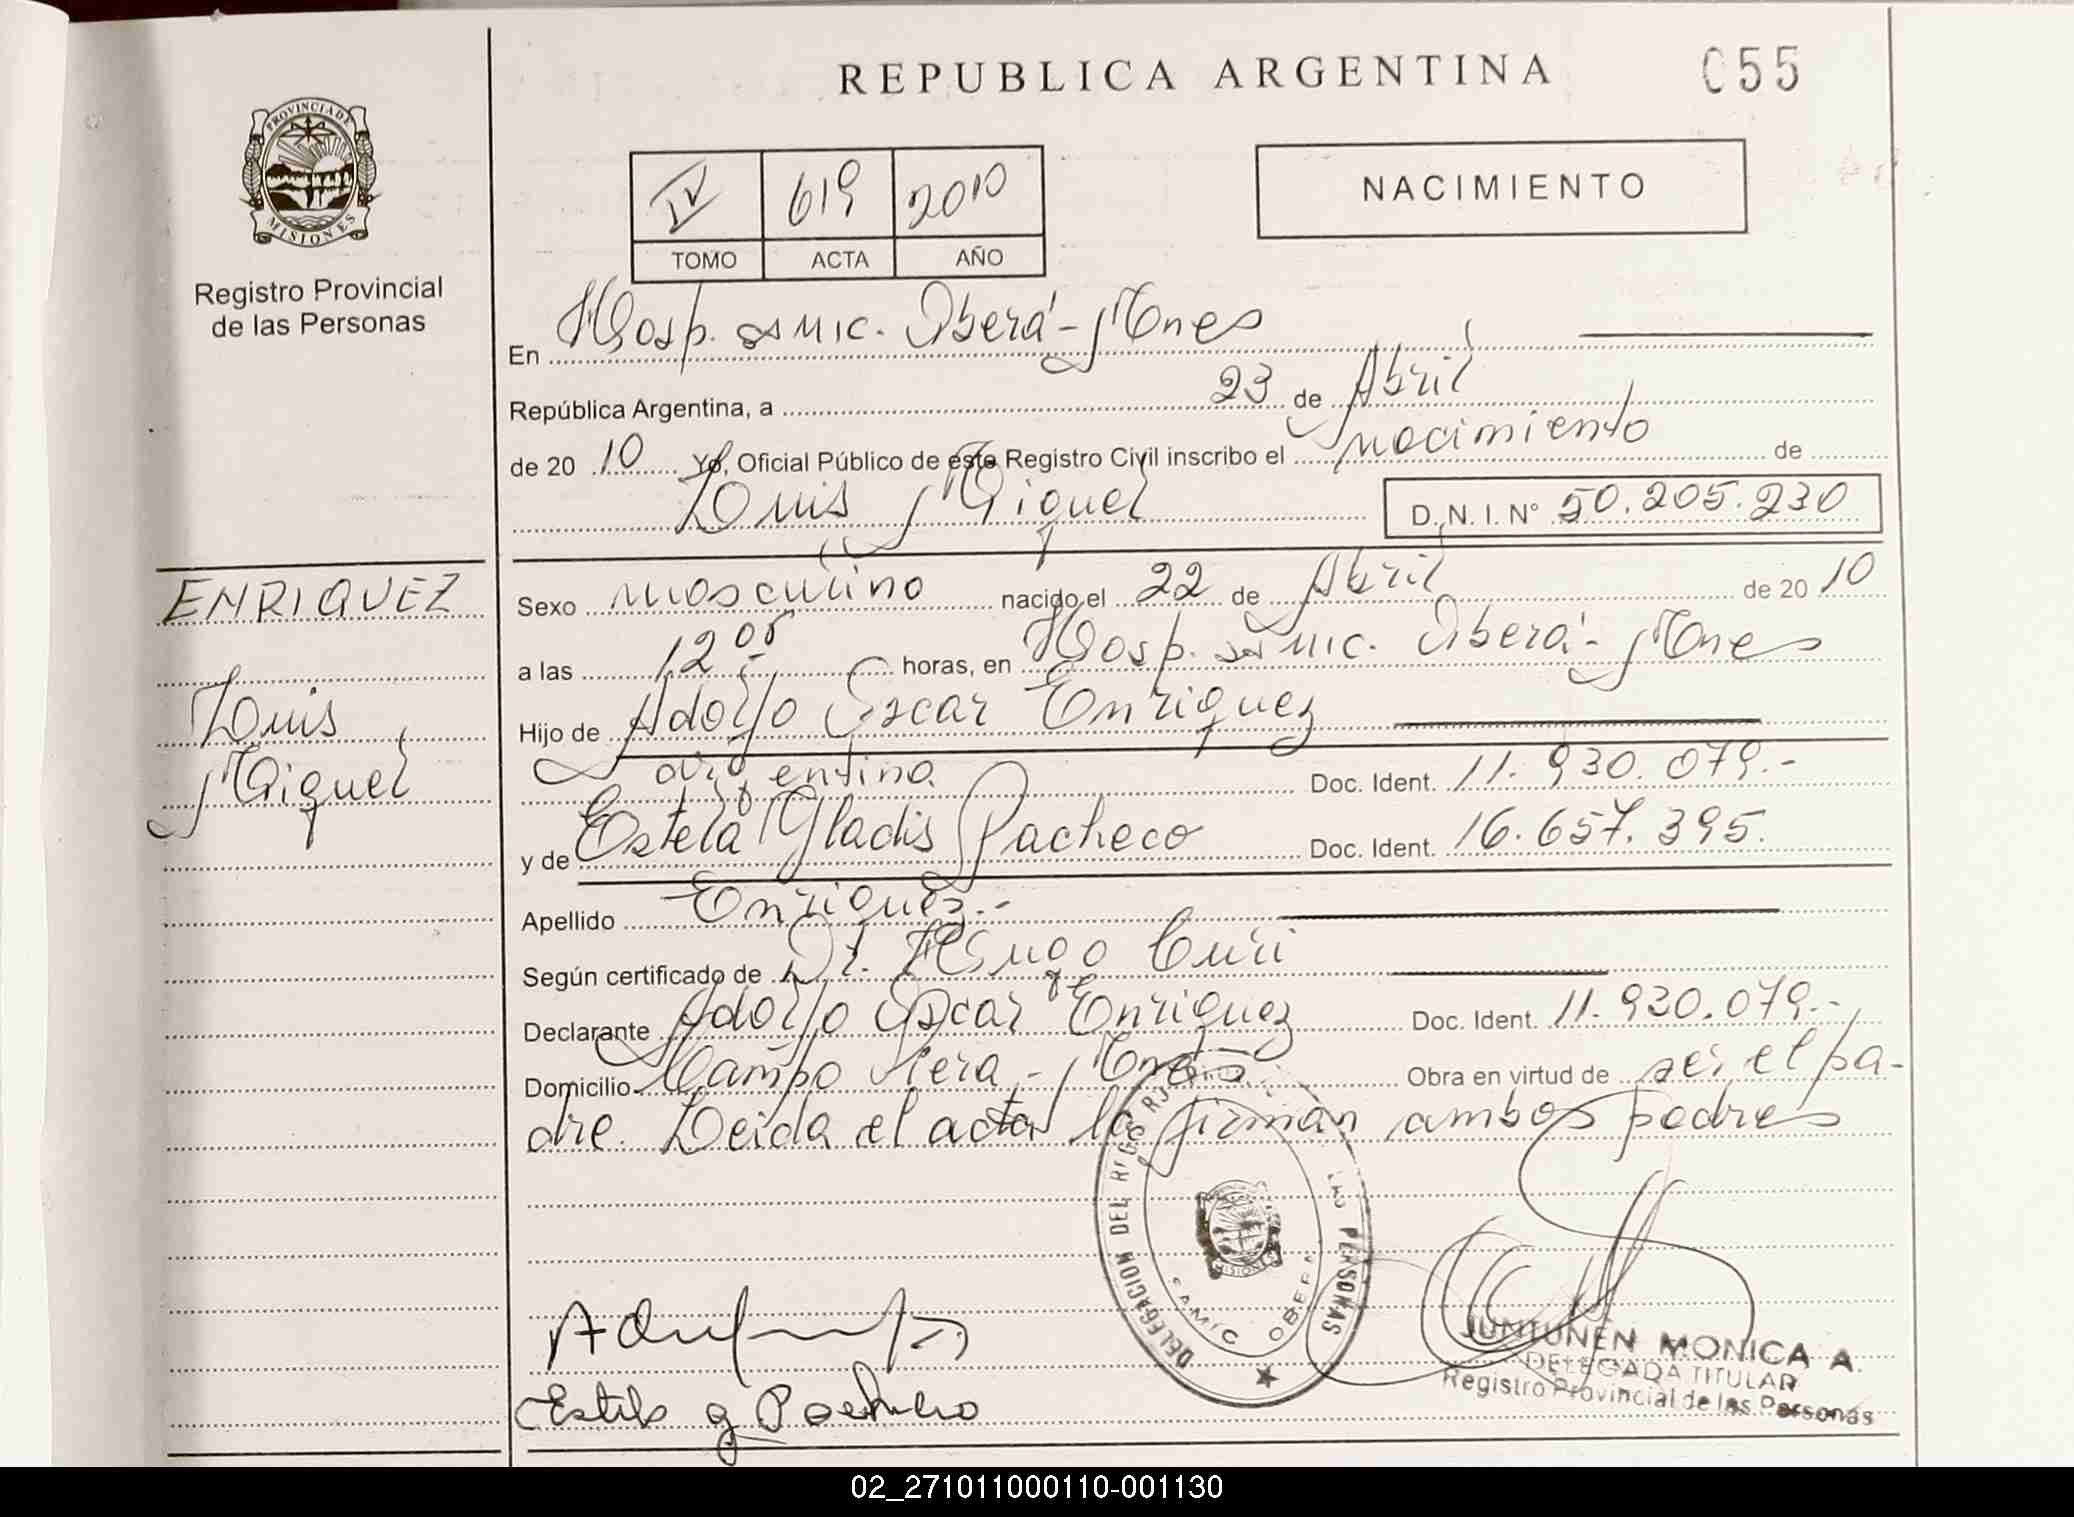 REPUBLICA ARGENTINA
055
PROVINCIA DE
MISIONES
Registro Provincial
de las Personas
IV 619 2010
TOMO ACTA AÑO
NACIMIENTO
En Hosp. SAMIC. Oberá - Mnes
República Argentina, a 23 de Abril
de 20 10 Yo, Oficial Público de este Registro Civil inscribo el nacimiento de
Luis Miguel D.N.I. N° 50.205.230
ENRIQUEZ
Luis
Miguel
Sexo masculino nacido el 22 de Abril de 20 10
a las 12 05 horas, en Hosp. SAMIC. Oberá - Mnes
Hijo de Adolfo Oscar Enriquez
argentina Doc. Ident. 11.930.079.-
y de Estela Gladis Pacheco Doc. Ident. 16.657.395.
Apellido Enriquez.-
Según certificado de Dr. Hugo Curi
Declarante Adolfo Oscar Enriquez Doc. Ident. 11.930.079.-
Domicilio Campo Viera - Mnes Obra en virtud de ser el pa-
dre. Leida el acta la firman ambos padres
DELEGACION DEL REG. LAS PERSONAS
SAMIC OBERA
MISIONES
Estela G Pacheco
JUNTUNEN MONICA A.
DELEGADA TITULAR
Registro Provincial de las Personas
02_271011000110-001130